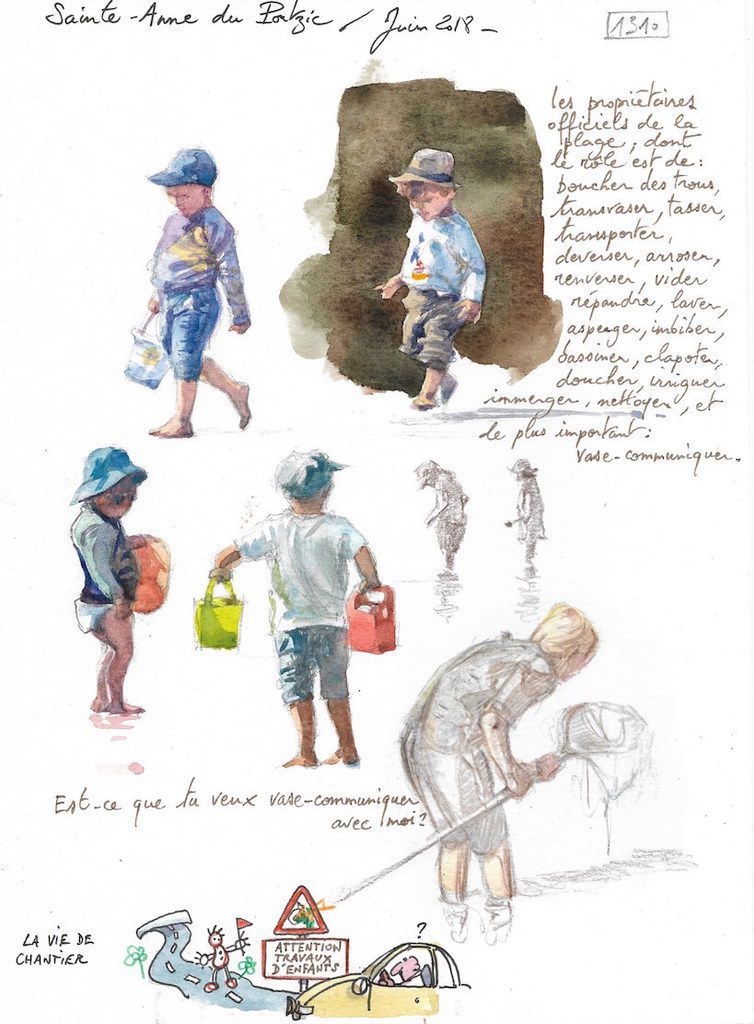 Sainte-Anne du Portzic / Juin 2018 -
1310
les propriétaires
officiels de la
plage, dont
le rôle est de :
boucher des trous,
transvaser, tasser,
transporter,
deverser, arroser,
renverser, vider
répandre, laver,
asperger, imbiber,
bassiner, clapoter,
doucher, irriguer
immerger, nettoyer, et
le plus important :
vase-communiquer.
Est-ce que tu veux vase-communiquer
avec moi ?
LA VIE DE
CHANTIER
ATTENTION
TRAVAUX
D'ENFANTS
?